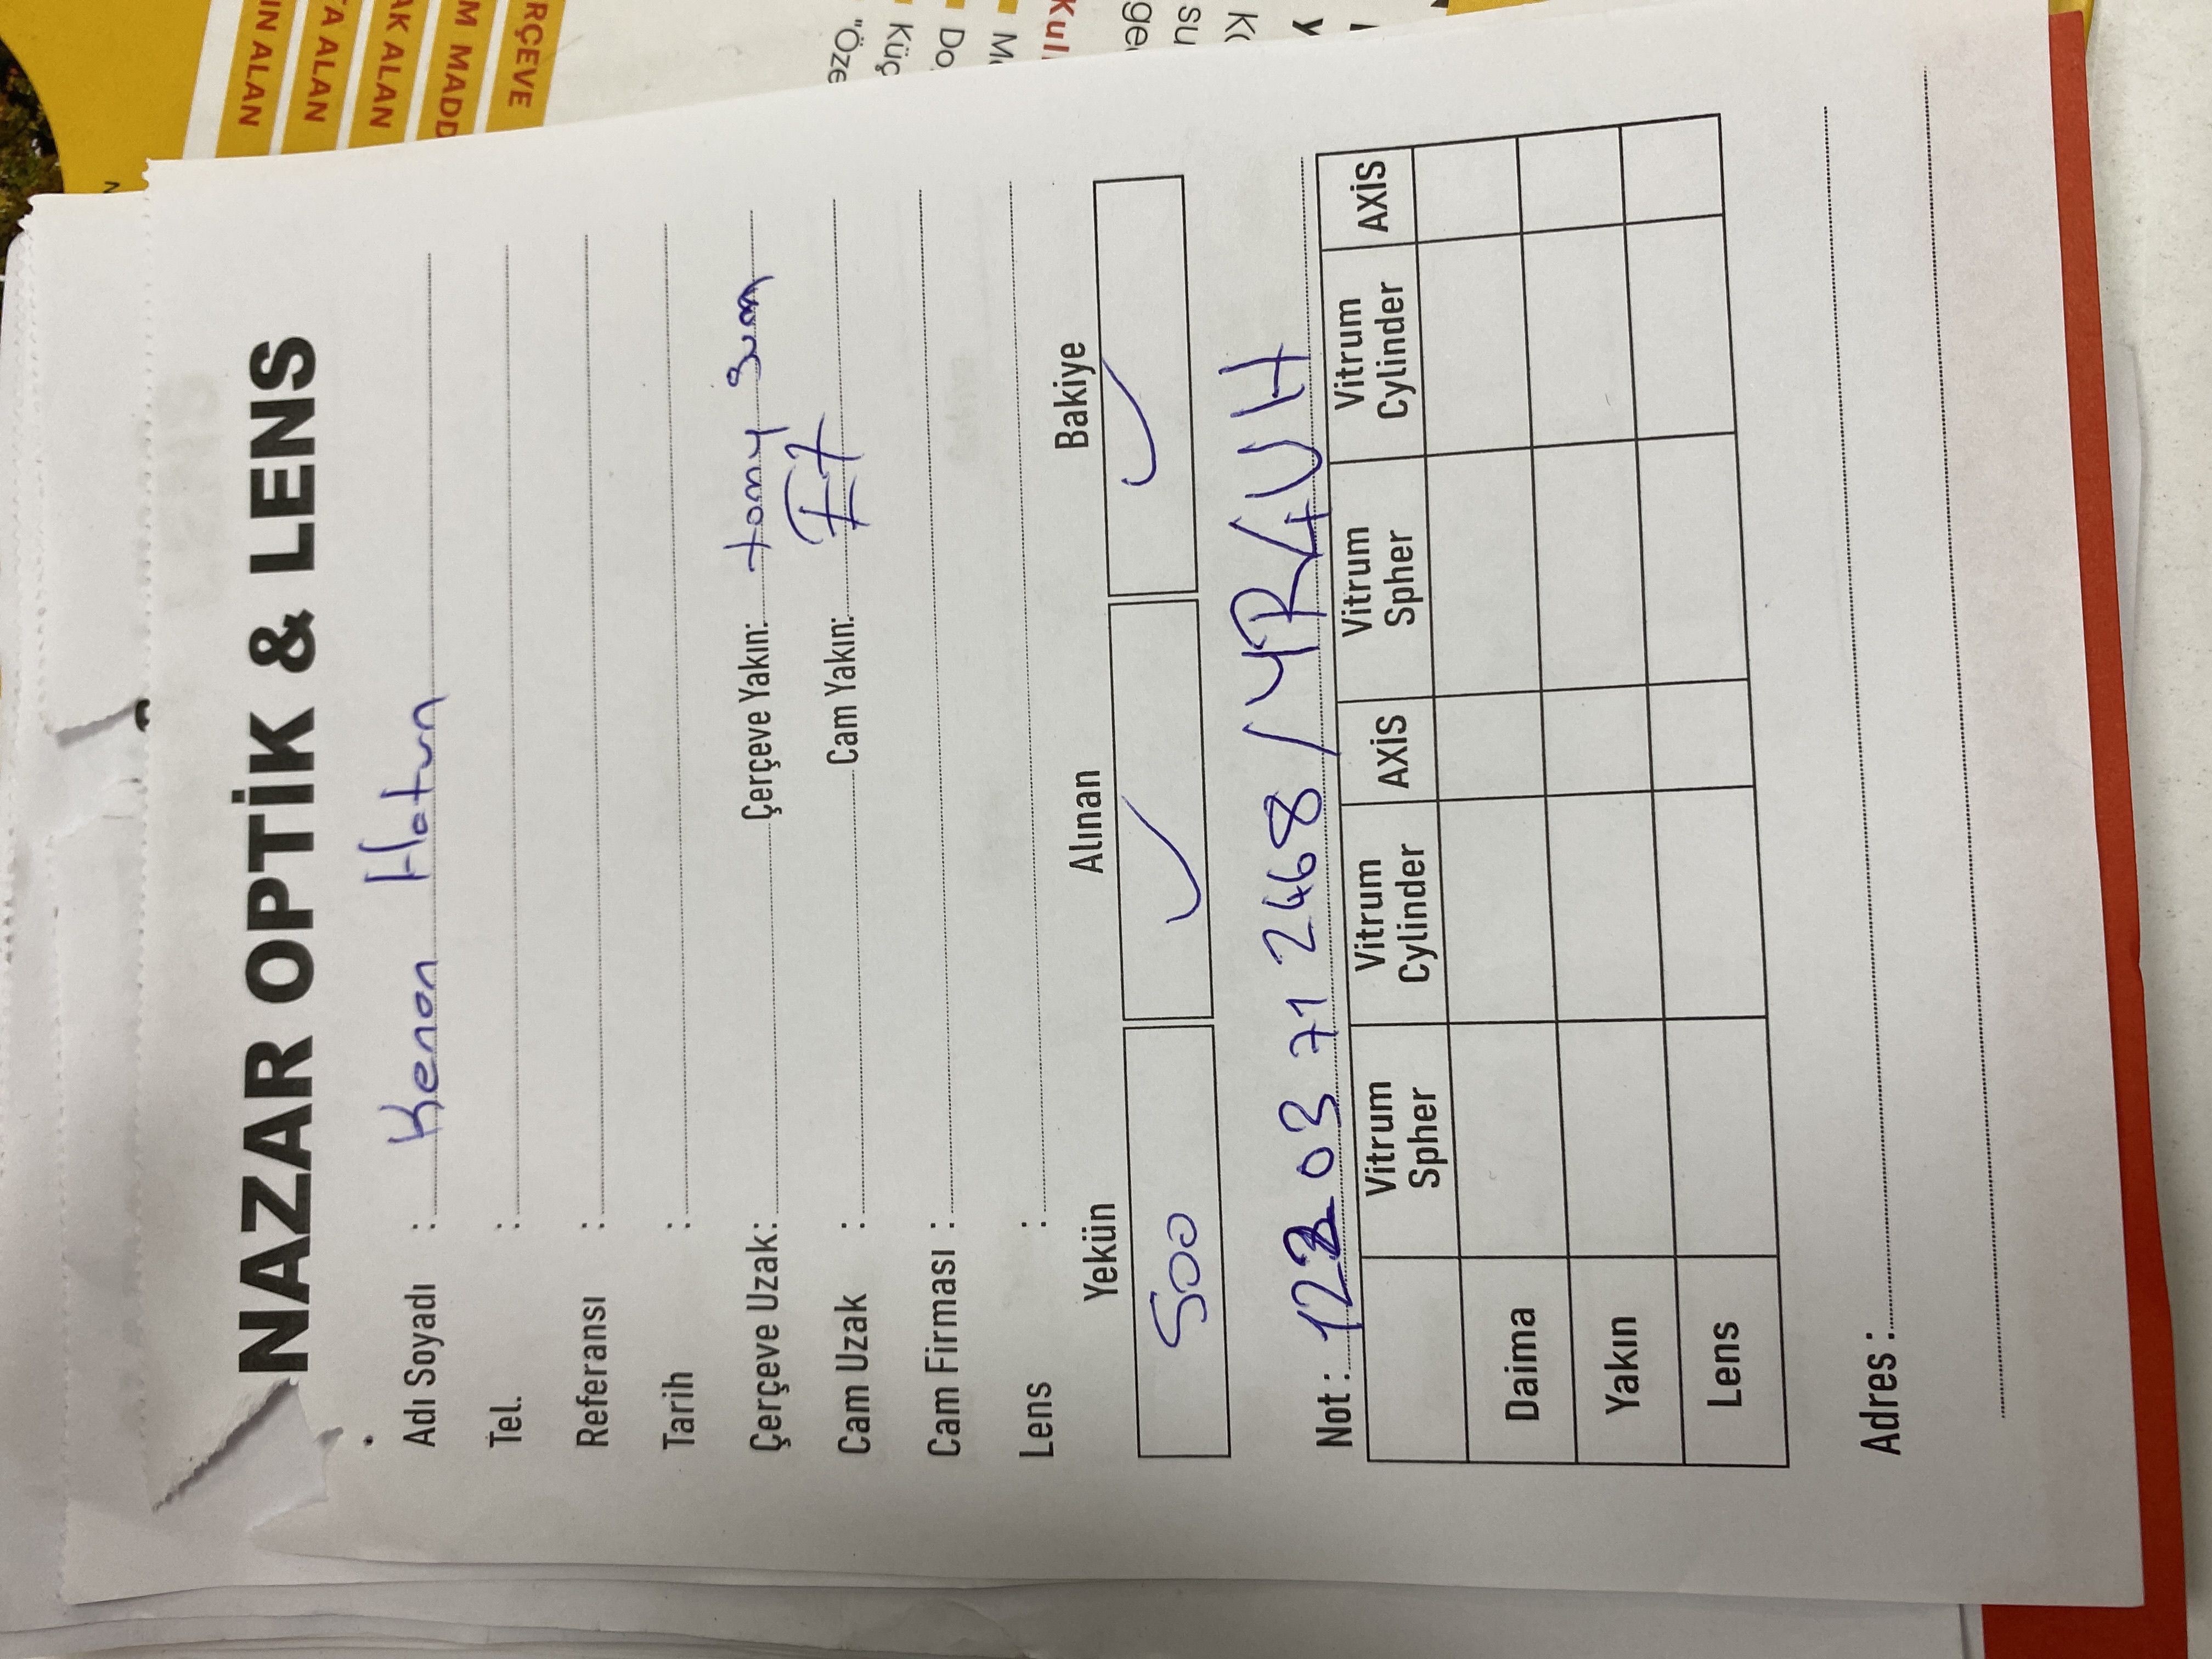 NAZAR OPTİK & LENS
Adı Soyadı : Kenan Hatun
Tel. :
Referansı :
Tarih :
Çerçeve Uzak: Çerçeve Yakın: tomy
Cam Uzak : Cam Yakın: E7
Cam Firması :
Lens :
Yekün Alınan Bakiye
500 ✓ ✓
Not : 122 03 71 2468 / YR4UH
Vitrum Spher Vitrum Cylinder AXİS Vitrum Spher Vitrum Cylinder AXİS
Daima
Yakın
Lens
Adres :
ALAN
ALAN
ALAK ALAN
MADD
RÇEVE
"Öze
Küç